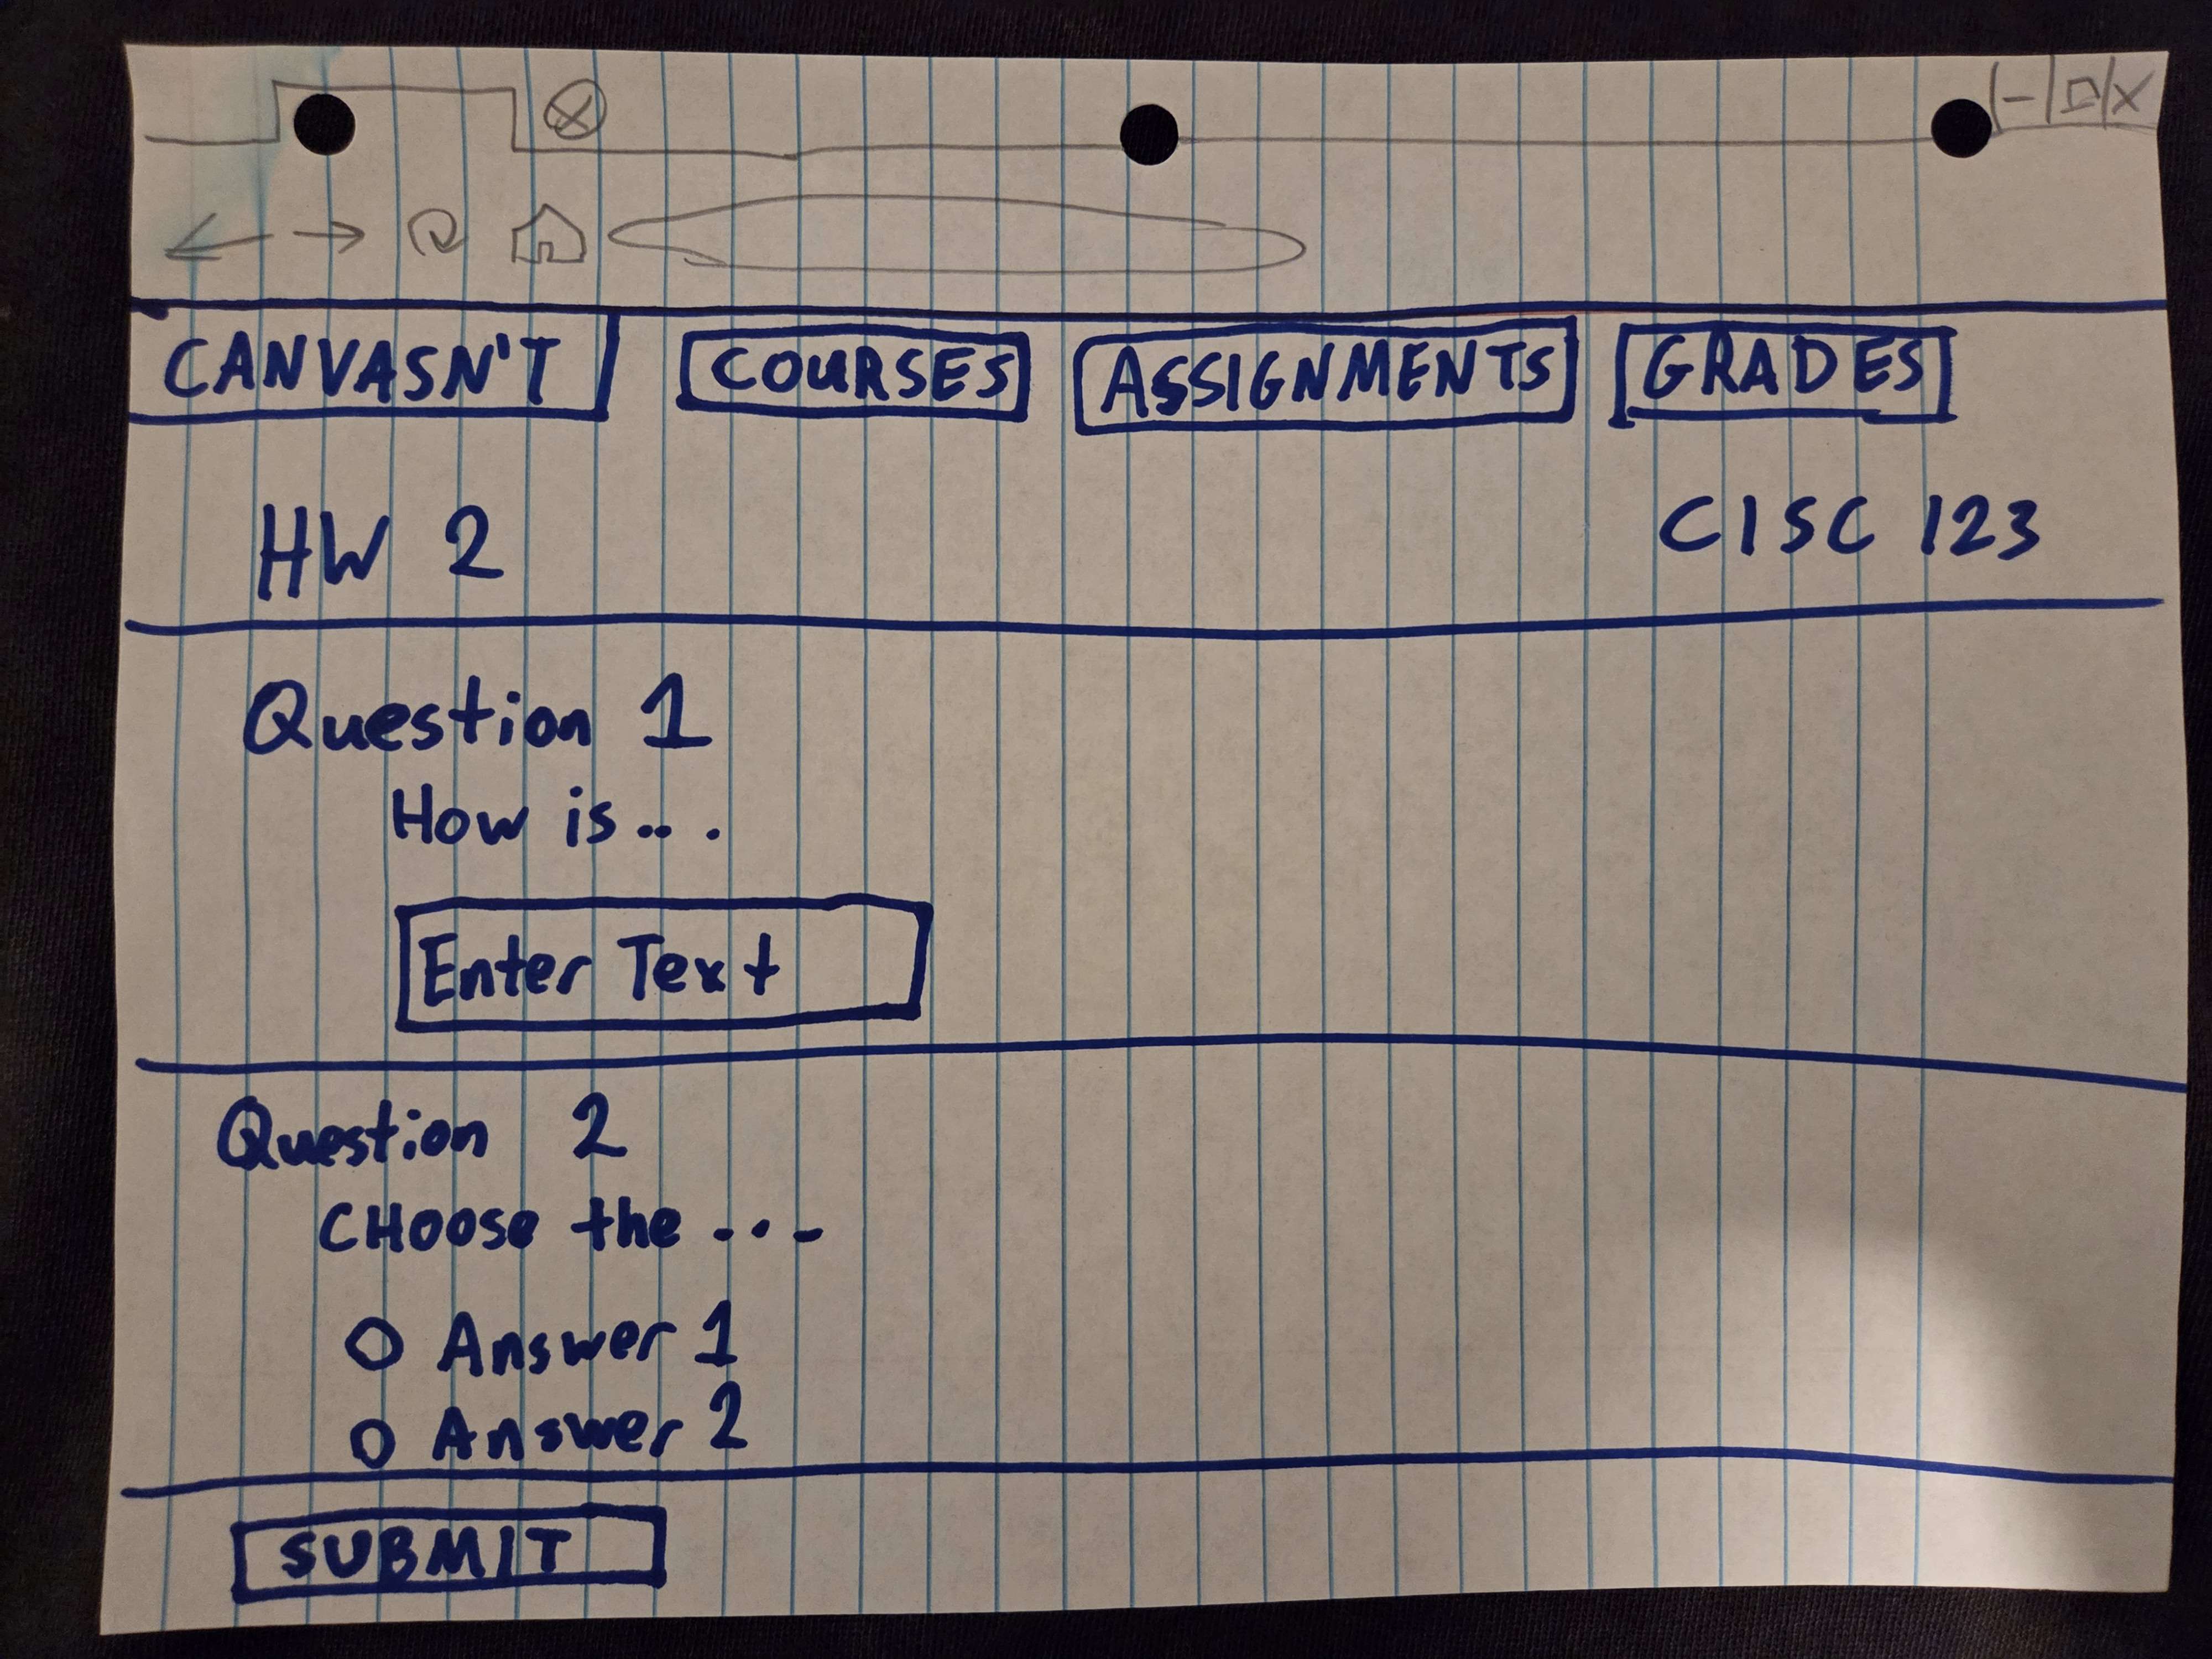 CANVASN'T COURSES ASSIGNMENTS GRADES
HW 2 CISC 123
Question 1
How is...
Enter Text
Question 2
CHoose the ...
Answer 1
Answer 2
SUBMIT